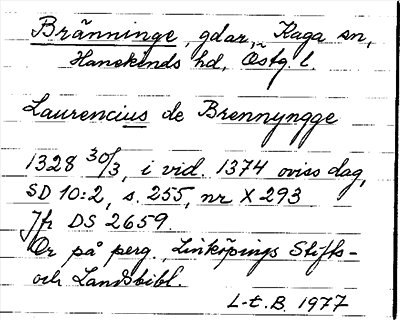 Bränninge, gdar, Kaga sn,
Hanekinds hd, Östg l.
Laurencius de Brennyngge
1328 30/3, i vid. 1374 oviss dag,
SD 10:2, s. 255, nr X 293
Jfr DS 2659.
Or på perg., Linköpings Stifts-
och Landsbibl.
L-t. B. 1977